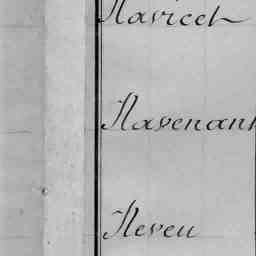 Navicet
Navenant
Neveu